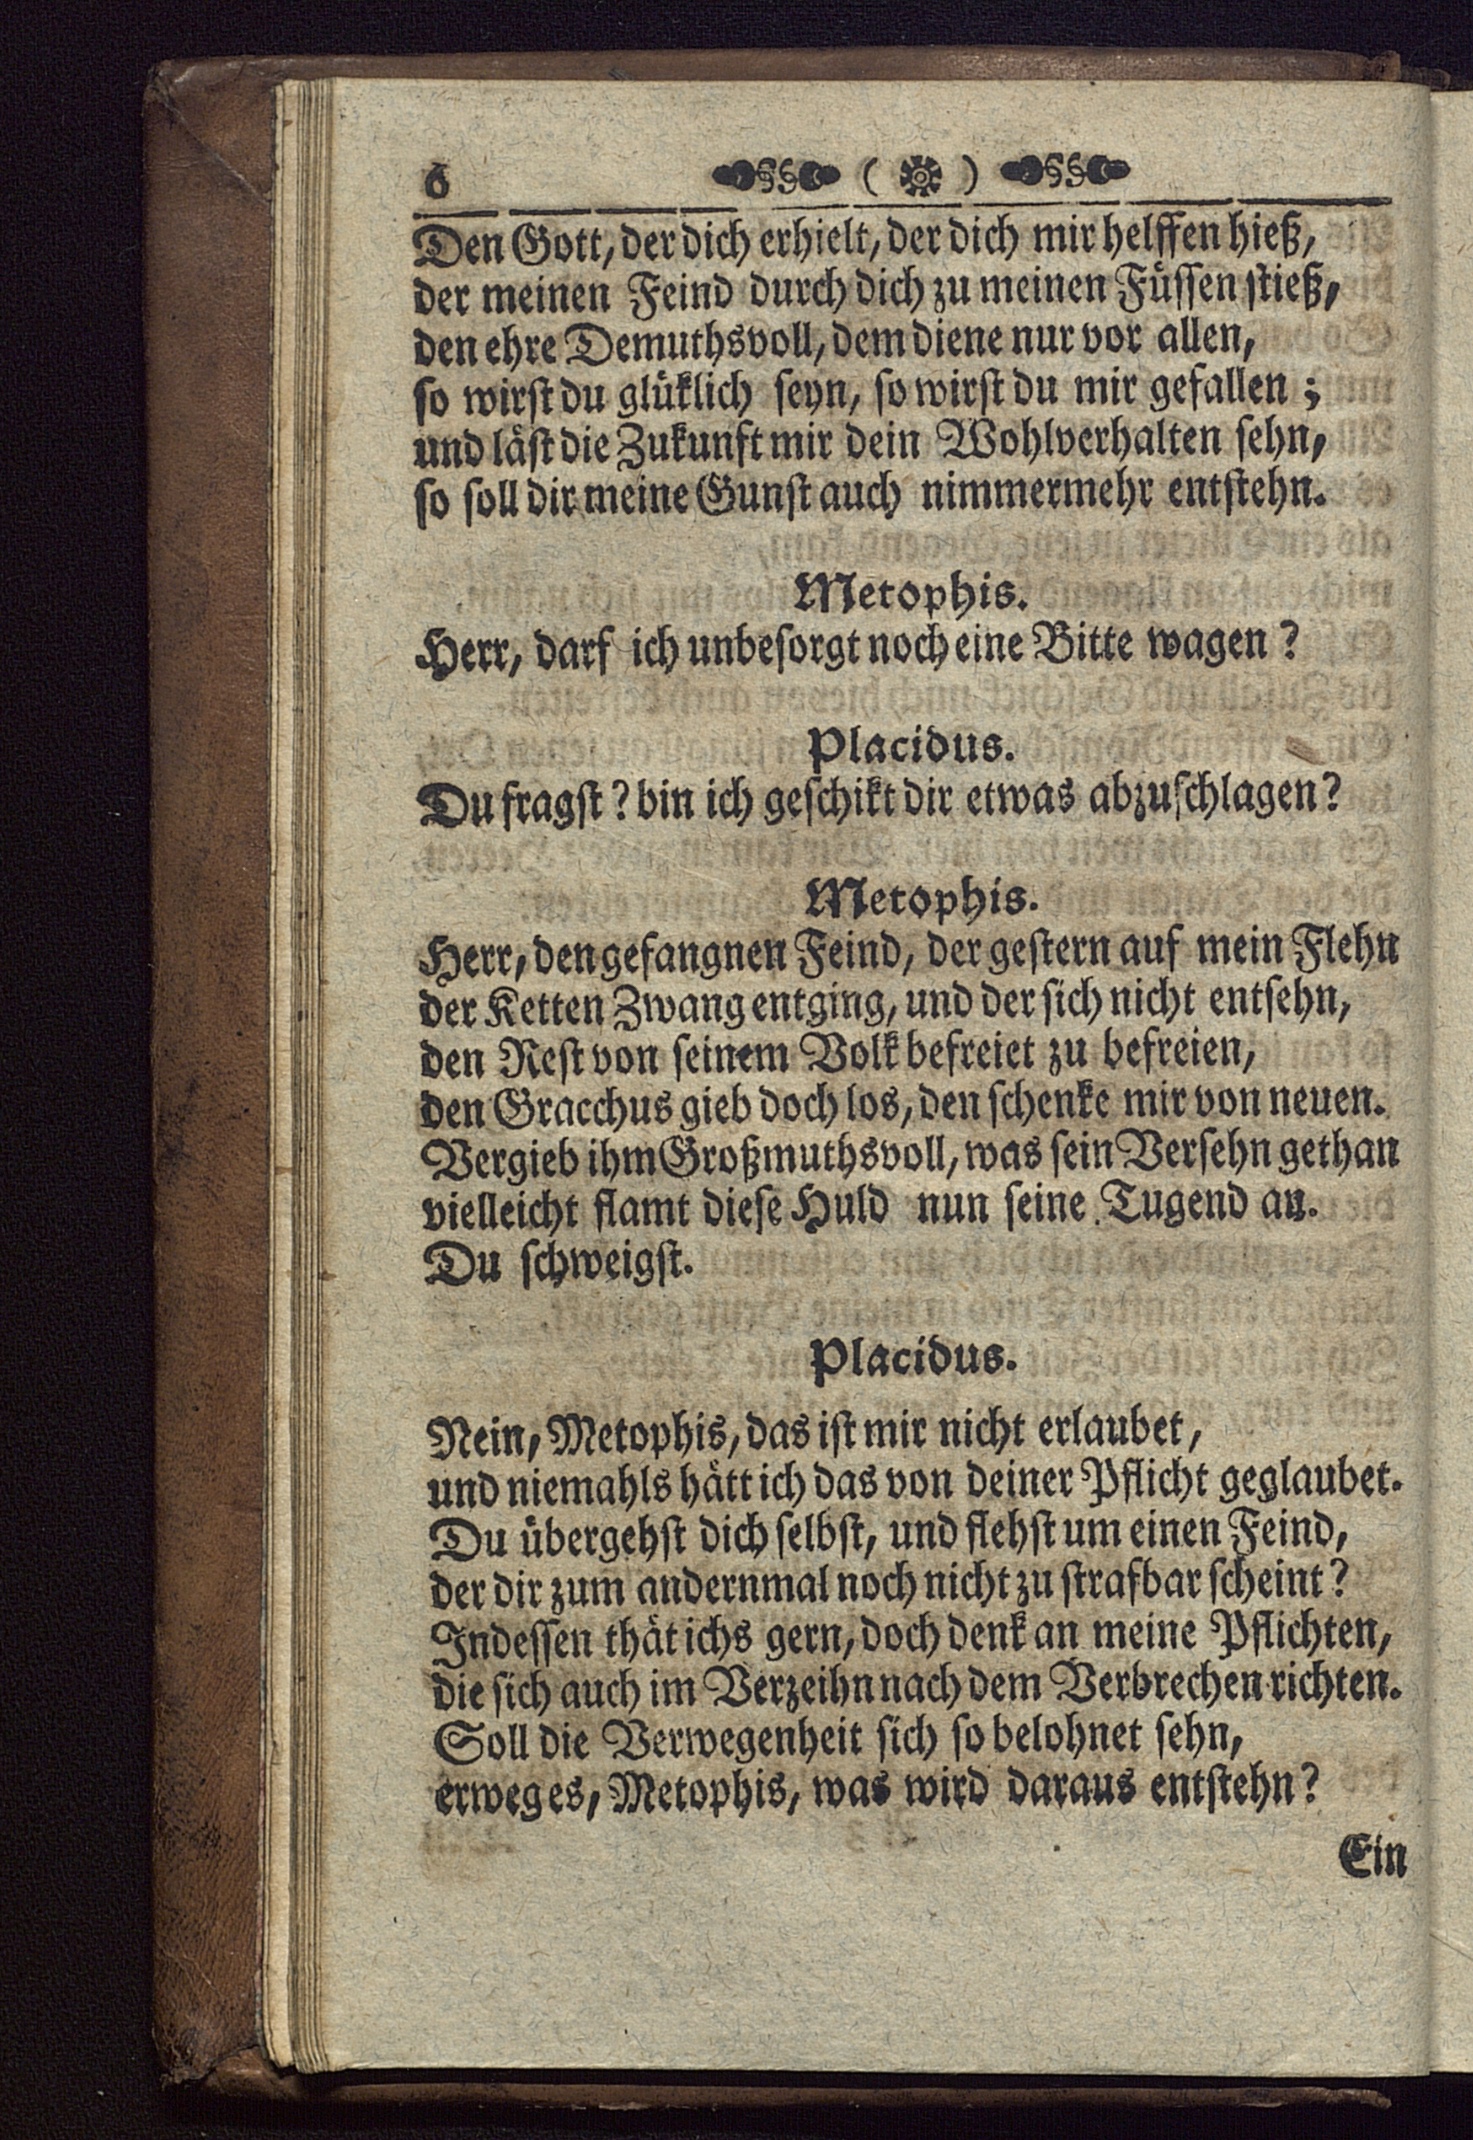 6 ( )
Den Gott, der dich erhielt, der dich mir helffen hieß,
der meinen Feind durch dich zu meinen Füssen stieß,
den ehre Demuthsvoll, dem diene nur vor allen,
so wirst du glüklich seyn, so wirst du mir gefallen;
und läst die Zukunft mir dein Wohlverhalten sehn,
so soll dir meine Gunst auch nimmermehr entstehn.
Metophis.
Herr, darf ich unbesorgt noch eine Bitte wagen?
Placidus.
Du fragst? bin ich geschikt dir etwas abzuschlagen?
Metophis.
Herr, den gefangnen Feind, der gestern auf mein Flehn
der Ketten Zwang entging, und der sich nicht entsehn,
den Rest von seinem Volk befreiet zu befreien,
den Gracchus gieb doch los, den schenke mir von neuen.
Vergieb ihm Großmuthsvoll, was sein Versehn gethan
vielleicht flamt diese Huld nun seine Tugend an.
Du schweigst.
Placidus.
Nein, Metophis, das ist mir nicht erlaubet,
und niemahls hätt ich das von deiner Pflicht geglaubet.
Du übergehst dich selbst, und flehst um einen Feind,
der dir zum andernmal noch nicht zu strafbar scheint?
Indessen thät ichs gern, doch denk an meine Pflichten,
die sich auch im Verzeihn nach dem Verbrechen richten.
Soll die Verwegenheit sich so belohnet sehn,
erweg es, Metophis, was wird daraus entstehn?
Ein